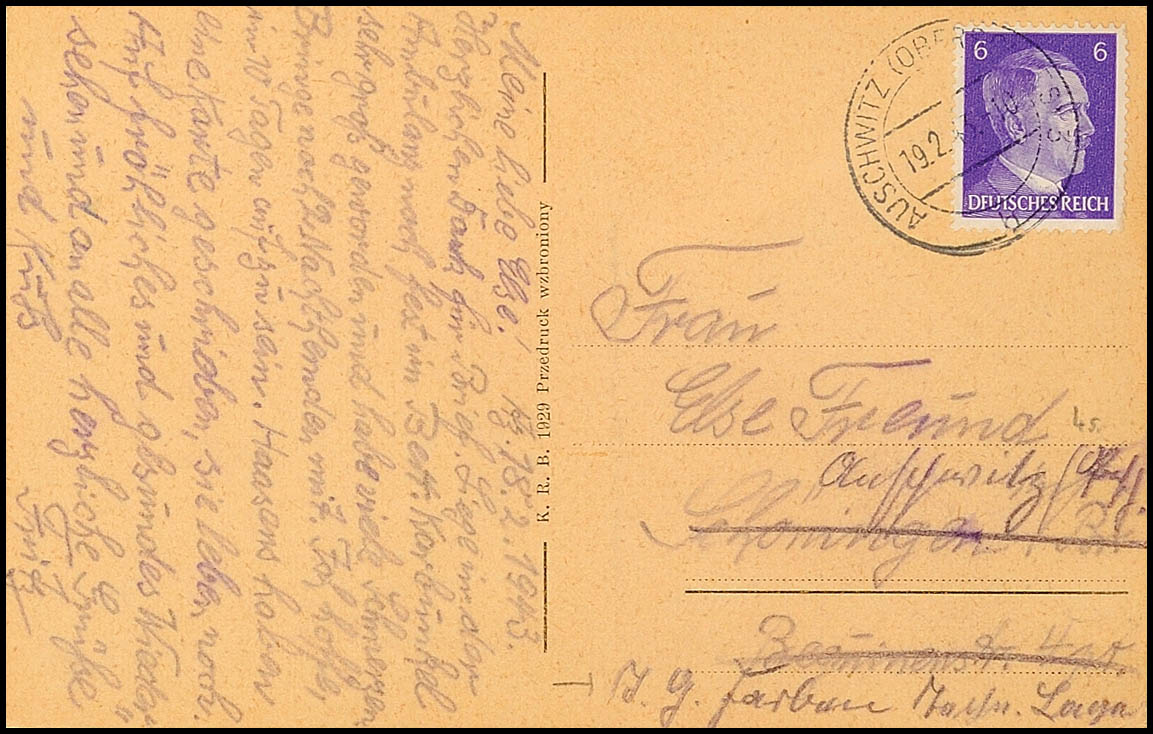 Meine liebe Else! 18.2.1943.
Herzlichen Dank für Brief. Liege in der
Ambulanz noch fest im Bett. Karbunkel
sehr groß geworden und habe viele Schmerzen
Bringe noch Nachthemden mit. Ich hoffe,
in 10 Tagen auf zu sein. Haasens haben
eine Karte geschrieben, sie leben noch.
Auf fröhliches und gesundes Wieder-
sehen und an alle herzliche Grüße
und Kuß
K. R. B. 1929 Przedruck wzbroniony
AUSCHWITZ (OBERS
19.2.43
6 6
DEUTSCHES REICH
Frau
Else Freund
45
Auschwitz
I. G. Farben